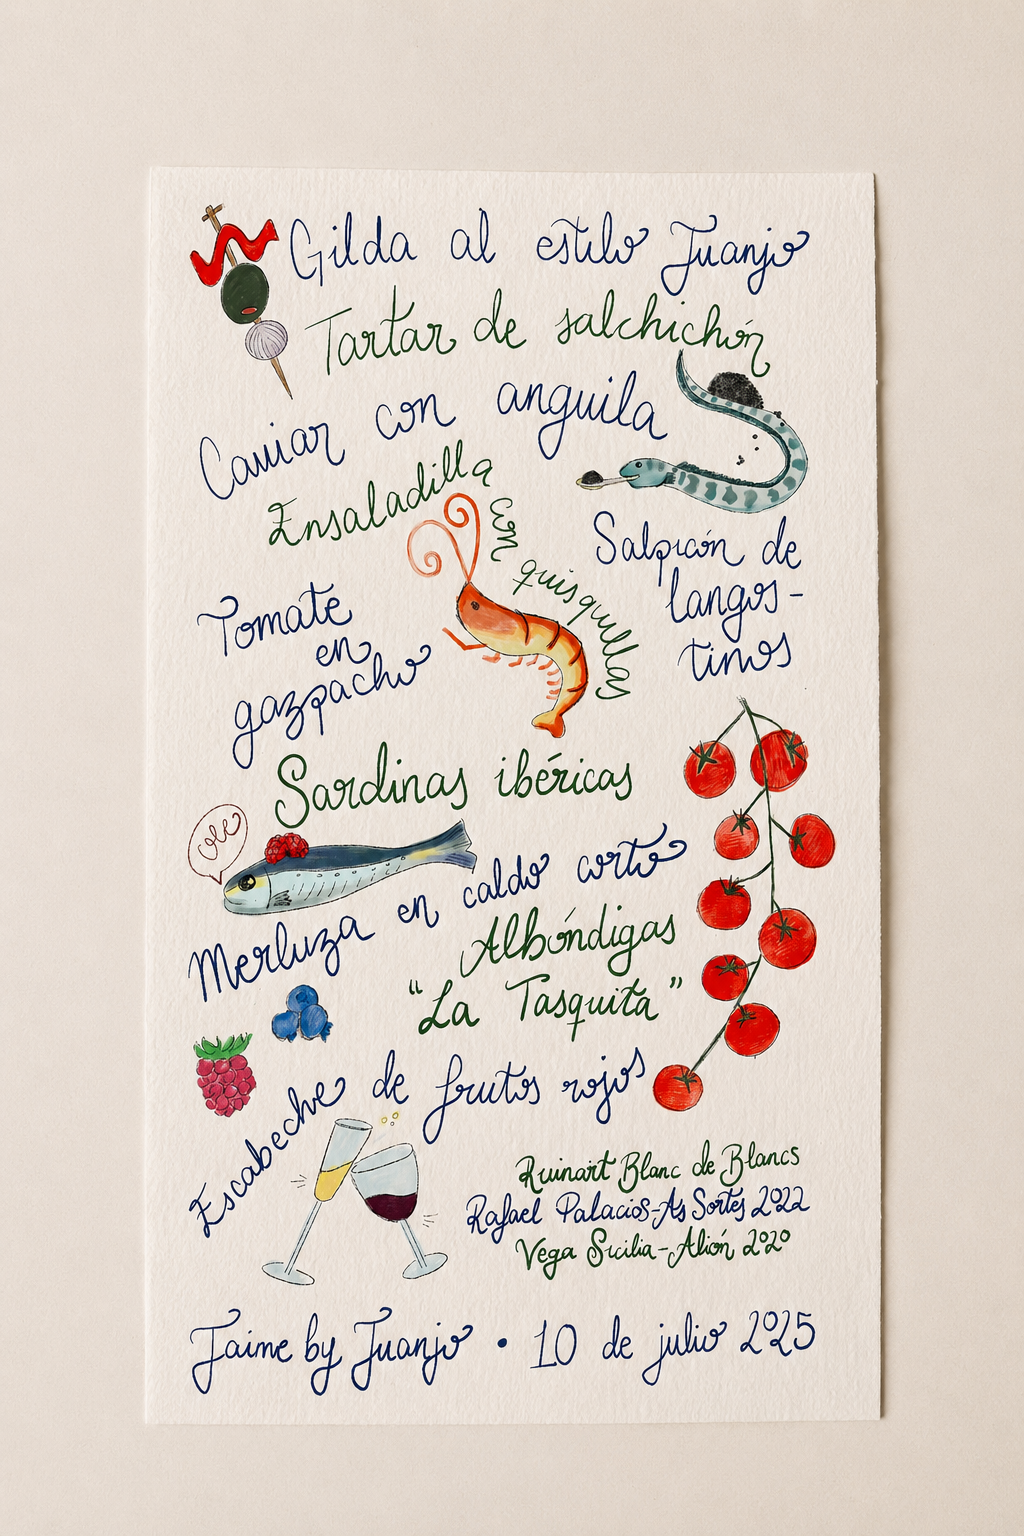 Gilda al estilo Juanjo
Tartar de salchichón
Caviar con anguila
Ensaladilla con quisquillas
Salpicón de
langos-
tinos
Tomate
en
gazpacho
Sardinas ibéricas
ole
Merluza en caldo corto
Albóndigas
"La Tasquita"
Escabeche de frutos rojos
Ruinart Blanc de Blancs
Rafael Palacios-As Sortes 2022
Vega Sicilia-Alión 2020
Jaime by Juanjo • 10 de julio 2025